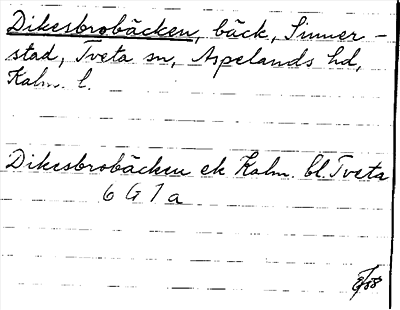 Dikesbrobäcken, bäck, Sinner-
stad, Tveta sn, Aspelands hd,
Kalm. l.
Dikesbrobäcken ek Kalm. bl. Tveta
6 G 7 a